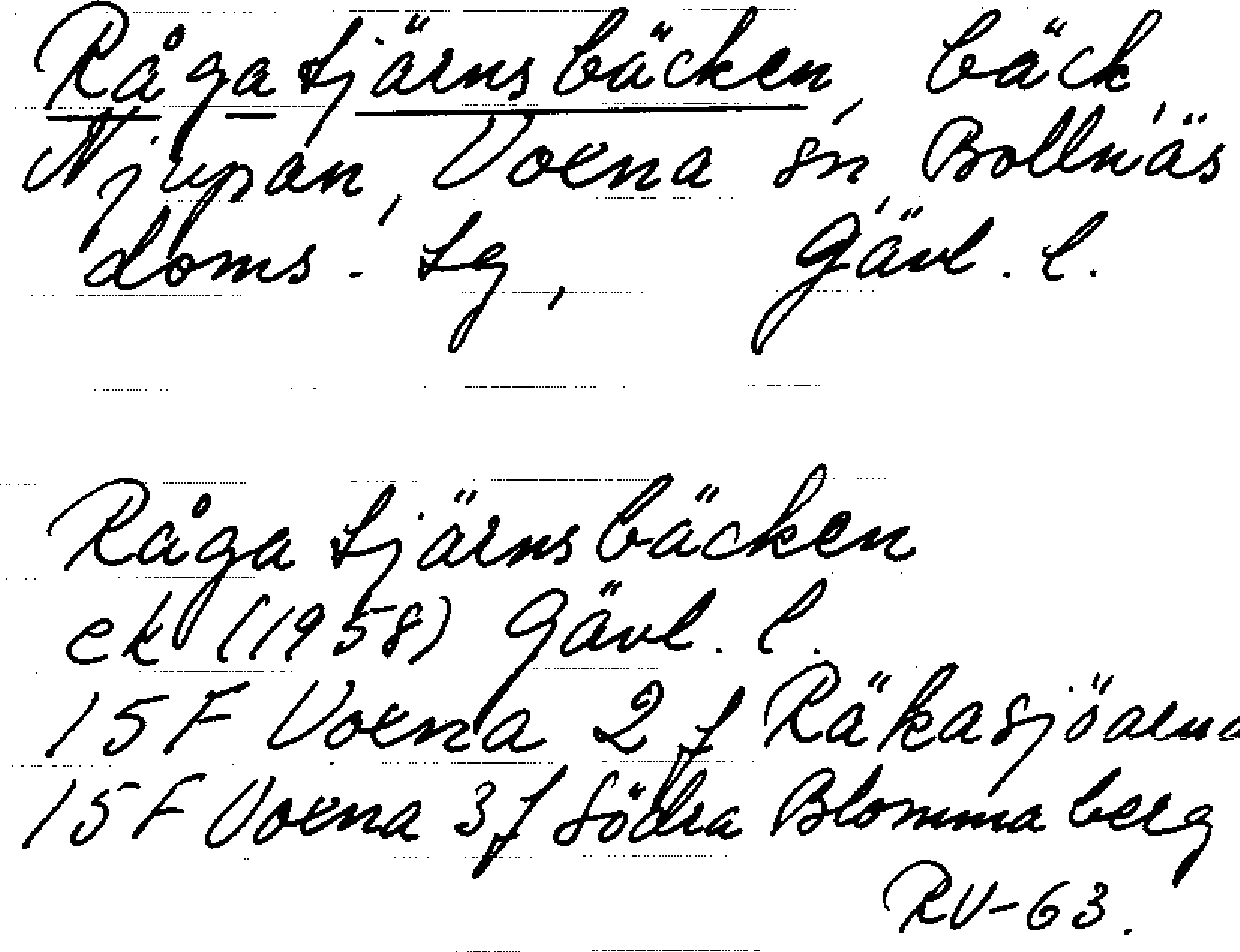 Rågatjärnsbäcken, bäck,
Njupån, Voxna sn, Bollnäs
doms. tg, Gävl. l.
Rågatjärnsbäcken
ek (1958) Gävl. l.
15 F Voxna 2 f Räkasjöarna
15 F Voxna 3 f Södra Blommaberg
RV-63.